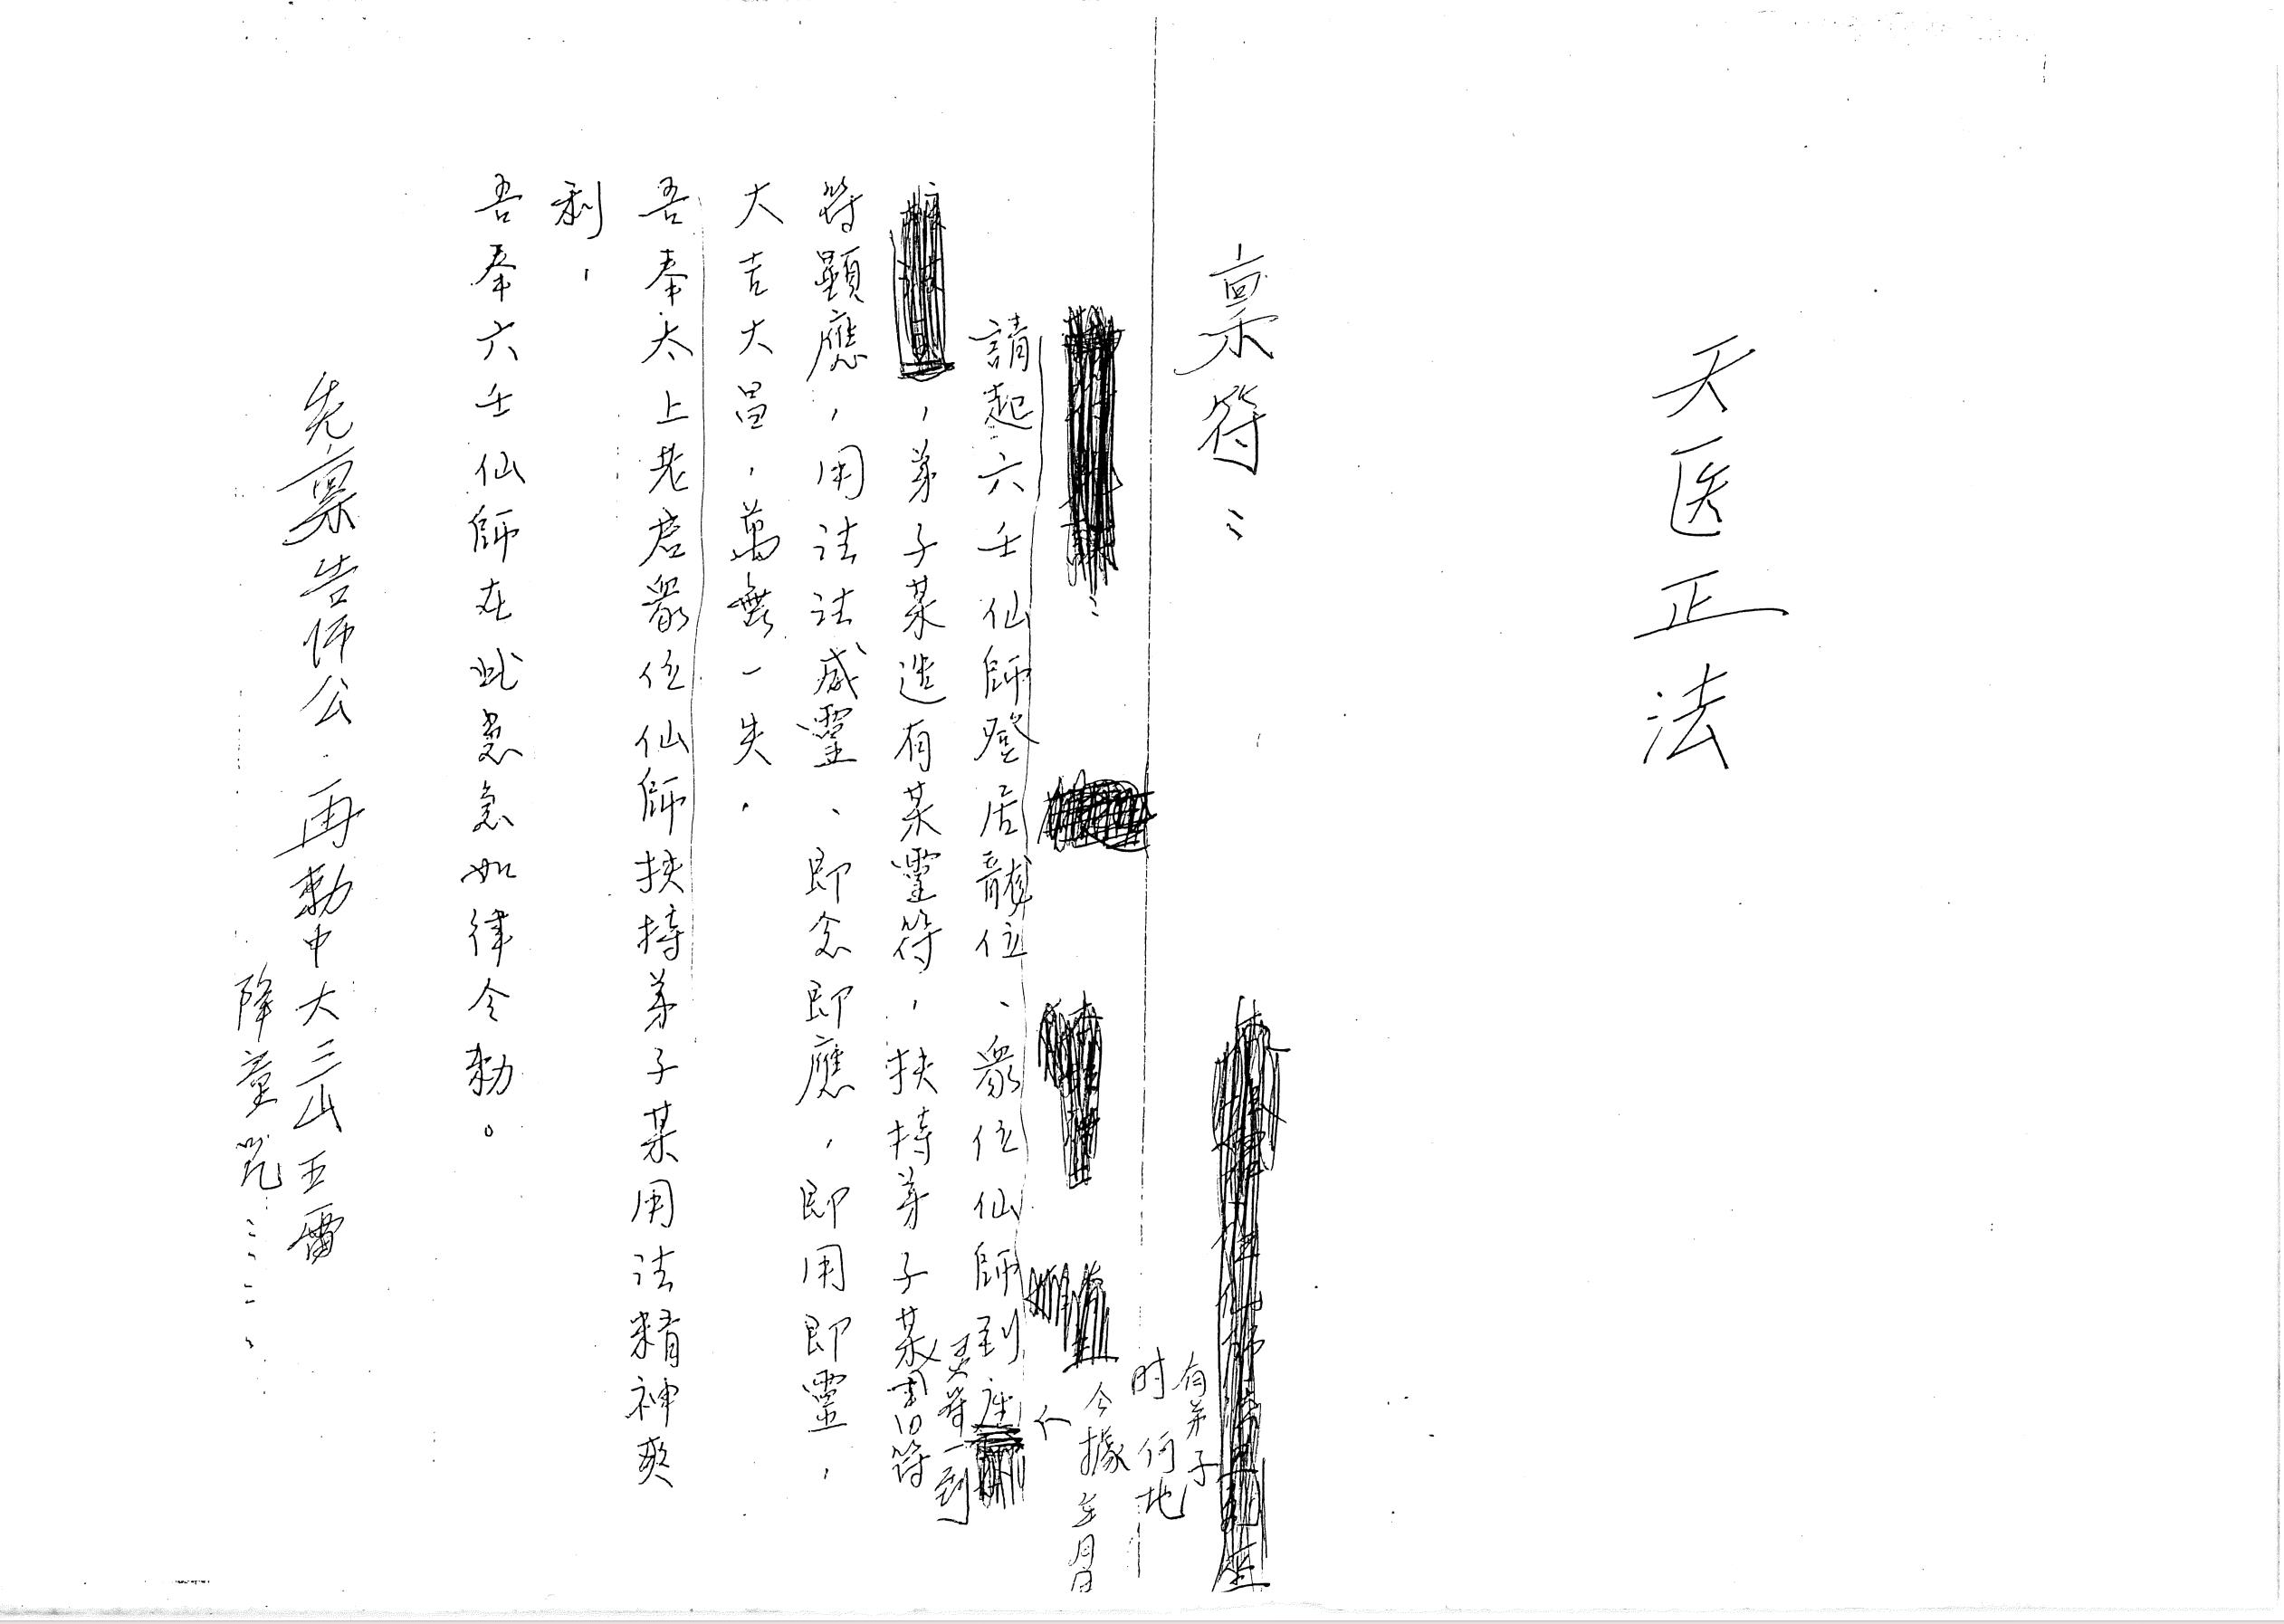 天医正法
稟符：
有弟子
时何地
今據年月日
請起六壬仙師登居龍位、衆位仙師到座
灵符一到
，弟子某造有某靈符，扶持弟子某書符
符顯應，用法法感靈、即念即應，即用即靈，
大吉大昌，萬無一失．
吾奉太上老君衆位仙師扶持弟子某用法精神爽
利，
吾奉六壬仙師在此急急如律令勅。
先稟告师公．再勅中大三山五雷
降童咒